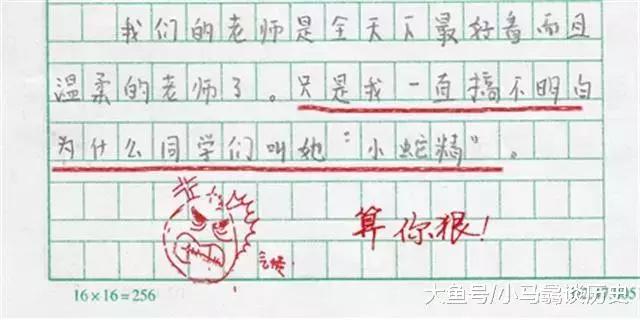 我们的老师是全天下最好看而且
温柔的老师了。只是我一直搞不明白
为什么同学们叫她“小蛇精”。
算你狠!
16×16=256
大鱼号/小马彝谈历史